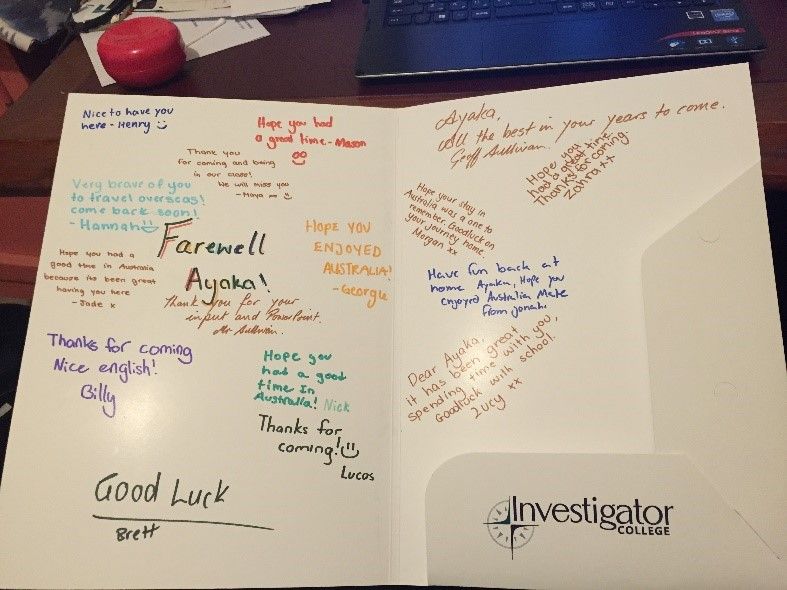 Nice to have you
here - Henry
Hope you had
a great time. - Mason
Thank you
for coming and being
in our class!
We will miss you
- Maya
Very brave of you
to travel overseas!
come back soon!
- Hannah
Farewell
Ayaka!
Thank you for your
input and PowerPoint.
Mr Sullivan.
HOPE YOU
ENJOYED
AUSTRALIA!
- George
Hope you had a
good time in Australia
because its been great
having you here
- Jade x
Thanks for coming
Nice english!
Billy
Hope you
had a good
time In
Australia! Nick
Thanks for
coming!
Lucas
Good Luck
Brett
Ayaka,
All the best in your years to come.
Geoff Sullivan
Hope you
had a great time
Thanks for coming.
Zahra xx
Hope your stay in
Australia was a one to
remember. Goodluck on
your journey home.
Morgan xx
Have fun back at
home Ayaka, Hope you
enjoyed Australia Mate
From Jonah.
Dear Ayaka,
it has been great
spending time with you,
Goodluck with school.
Lucy xx
Investigator
COLLEGE